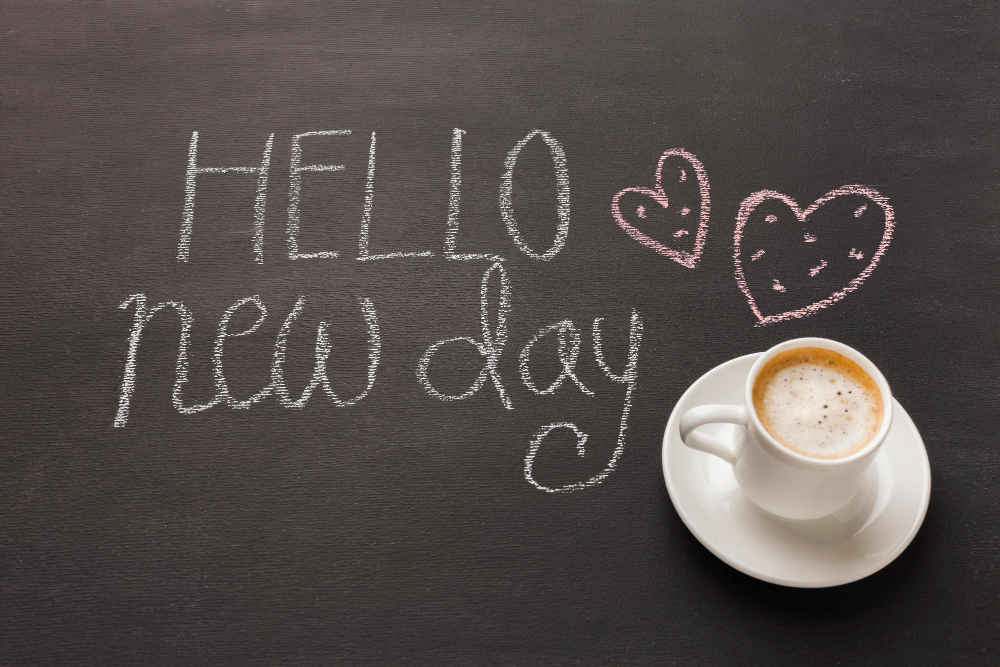 HELLO
new day